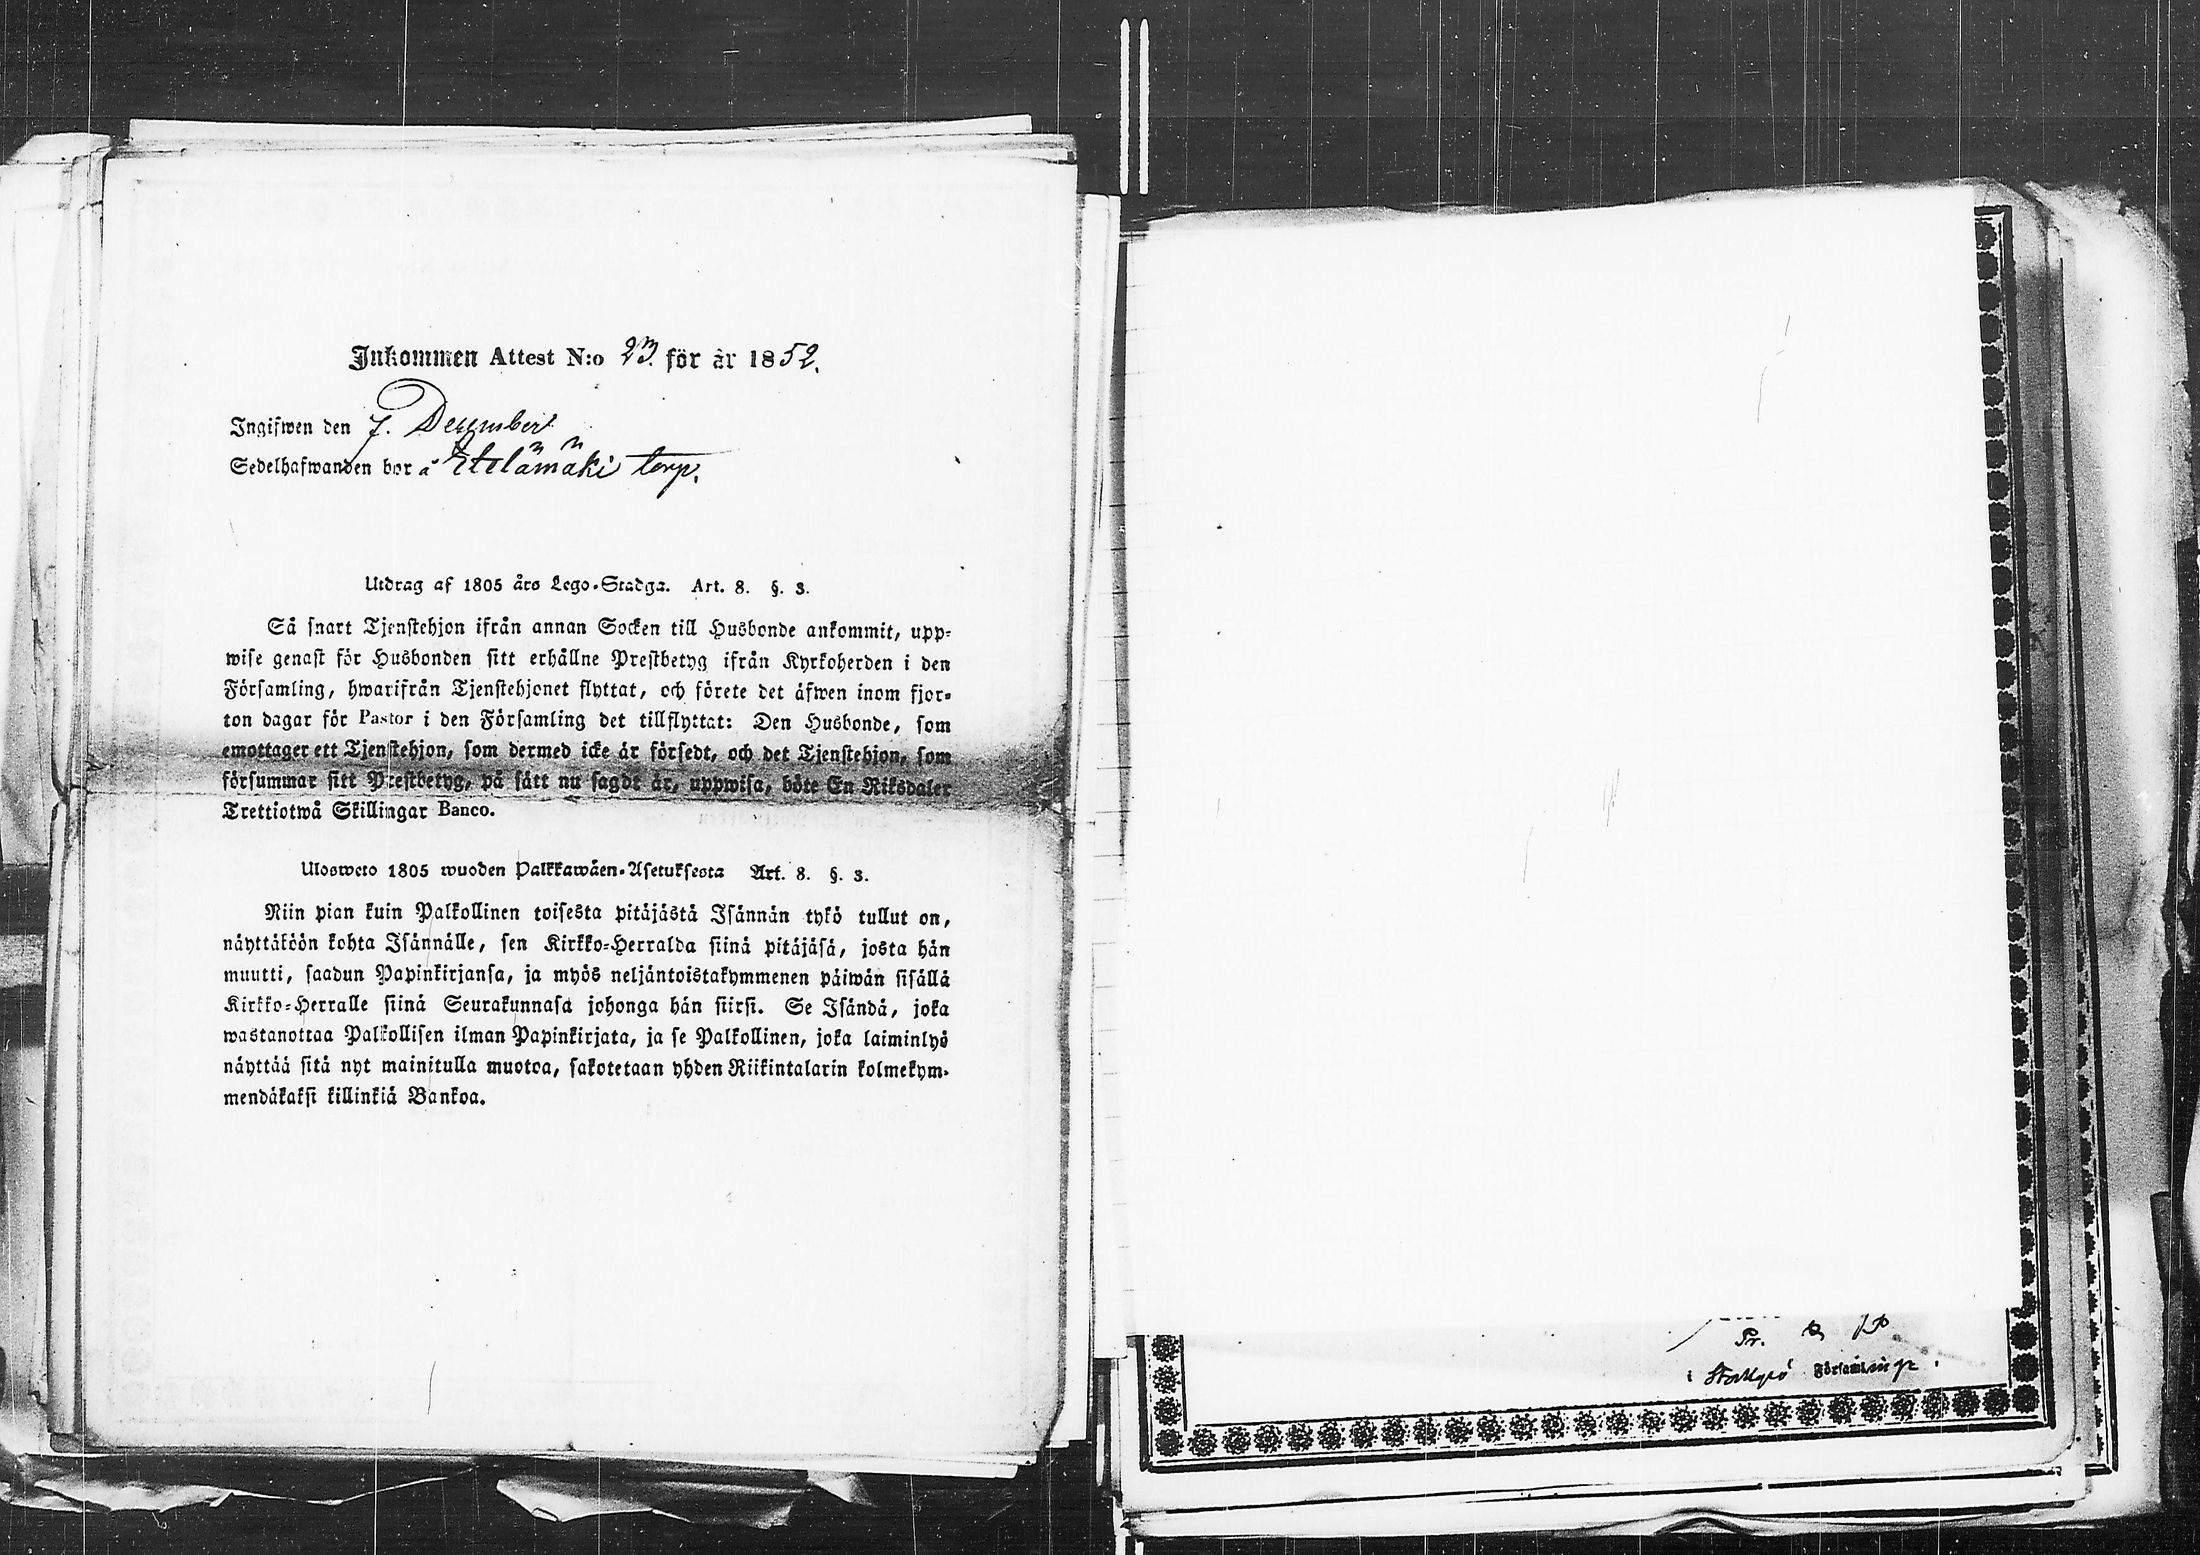 Inkommen Attest N:o 23. för år 1852.
Ingifwen den 7. December
Sedelhafwanden bor å Etelämäki torp.
Utdrag af 1805 års Lego-Stadga. Art. 8. §. 3.
Så snart Tjenstehjon ifrån annan Socken till Husbonde ankommit, upp-
wise genast för Husbonden sitt erhållne Prestbetyg ifrån Kyrkoherden i den
Församling, hwarifrån Tjenstehjonet flyttat, och förete det äfwen inom fjor-
ton dagar för Pastor i den Församling det tillflyttat: Den Husbonde, som
emottager ett Tjenstehjon, som dermed icke är försedt, och det Tjenstehjon, som
försummar sitt Prestbetyg, på sätt nu sagdt är, uppwisa, böte En Riksdaler
Trettiotwå Skillingar Banco.
Ulosweto 1805 wuoden Palkkawäen-Asetuksesta Art. 8. §. 3.
Niin pian kuin Palkollinen toisesta pitäjästä Isännän tykö tullut on,
näyttäköön kohta Isännälle, sen Kirkko-Herralda siinä pitäjäsä, josta hän
muutti, saadun Papinkirjansa, ja myös neljäntoistakymmenen päiwän sisällä
Kirkko-Herralle siinä Seurakunnasa johonga hän siirsi. Se Isändä, joka
wastanottaa Palkollisen ilman Papinkirjata, ja se Palkollinen, joka laiminlyö
näyttää sitä nyt mainitulla muotoa, sakotetaan yhden Riikintalarin kolmekym-
mendäkaksi killinkiä Bankoa.
Pr.
i Storkyrö Församling.